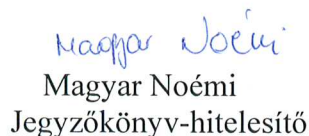 Magyar Noémi
Magyar Noémi
Jegyzőkönyv-hitelesítő